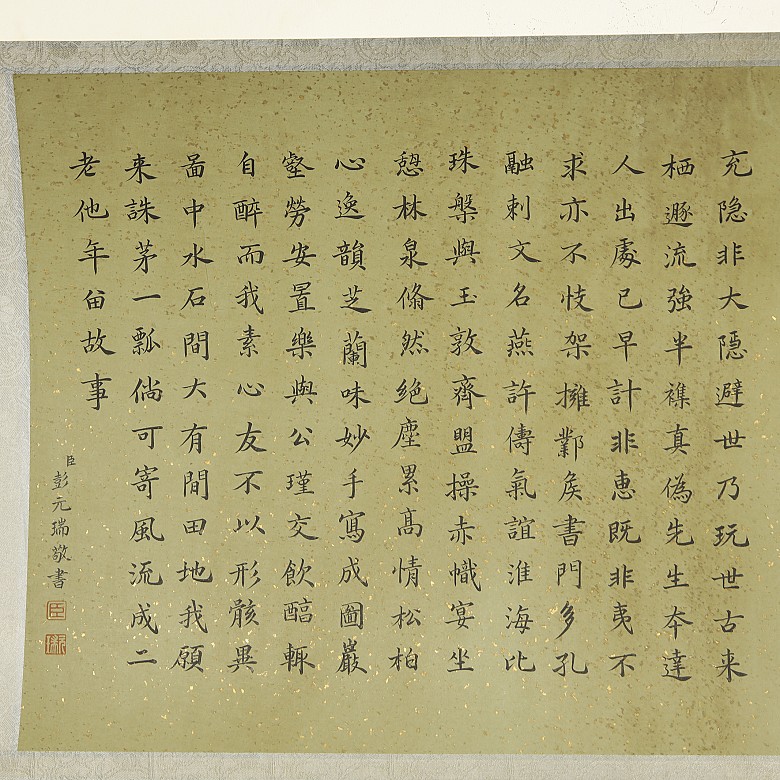 充隐非大隱避世乃玩世古来
栖遯流強半襍真偽先生夲達
人出處已早計非惠既非夷不
求亦不忮架擁鄴矦書門多孔
融刺文名燕許儔氣誼淮海比
珠槃與玉敦齊盟操赤幟宴坐
憩林泉翛然绝塵累髙情松柏
心逸韻芝蘭味妙手寫成圖巖
壑勞安置樂與公瑾交飲醇輙
自醉而我素心友不以形骸異
啚中水石間大有閒田地我願
来誅茅一瓢倘可寄風流成二
老他年畱故事
臣彭元瑞敬書
臣